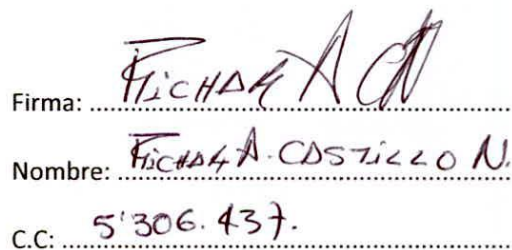 Firma: RicHAR A CN
Nombre: RicHAR A. CASTiLLO N.
C.C: 5'306.437.